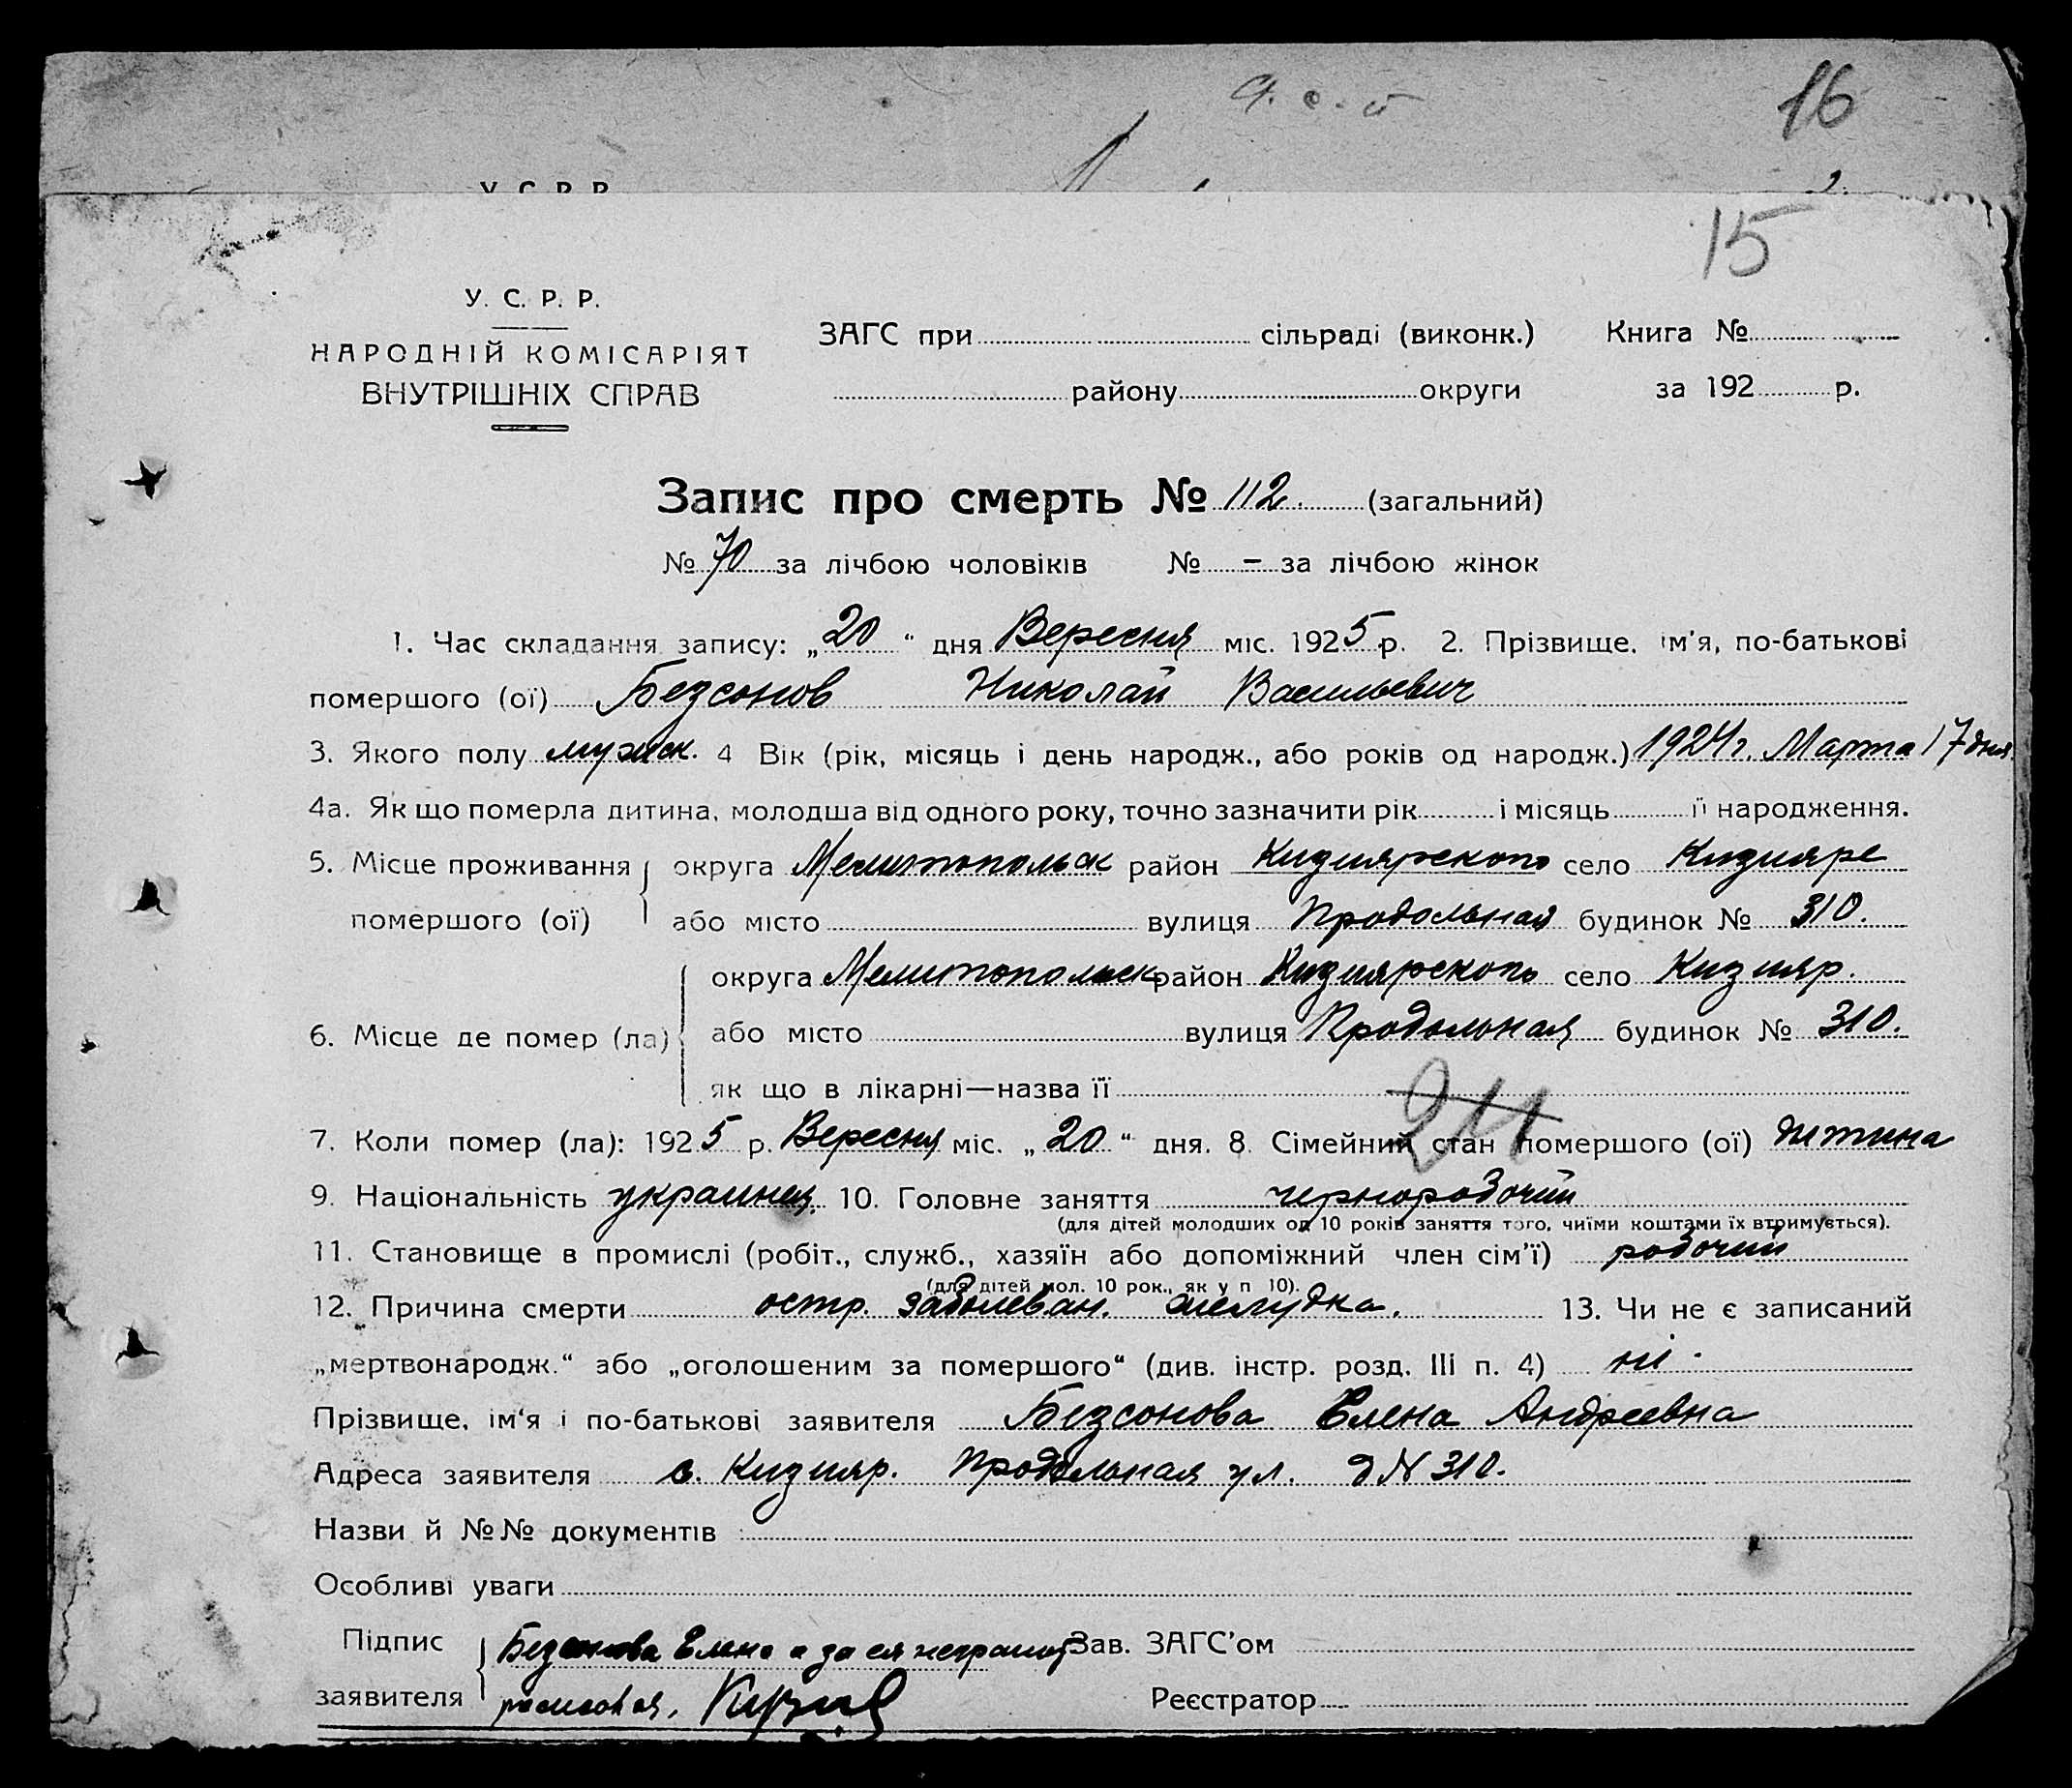 16
У. С. Р. Р.
15
У. С. Р. Р.
НАРОДНІЙ КОМІСАРІЯТ
ВНУТРІШНІХ СПРАВ
ЗАГС при сільраді (виконк.) Книга №
району округи за 192 р.
Запис про смерть № 112. (загальний)
№ 70 за лічбою чоловіків № – за лічбою жінок
1. Час складання запису: „20“ дня Вересня міс. 1925 р. 2. Прізвище, ім'я, по-батькові
помершого (ої) Безсонов Николай Васильевич
3. Якого полу мужск. 4 Вік (рік, місяць і день народж., або років од народж.) 1924 г. Марта 17 дня
4а. Як що померла дитина, молодша від одного року, точно зазначити рік і місяць її народження.
5. Місце проживання округа Мелитопольск район Кизиярского село Кизияре
помершого (ої) або місто вулиця Продольная будинок № 310.
округа Мелитопольск район Кизиярского село Кизияр.
6. Місце де помер (ла) або місто вулиця Продольная будинок № 310.
як що в лікарні—назва її
211
7. Коли помер (ла): 1925 р. Вересня міс. „20“ дня. 8. Сімейний стан помершого (ої) дитина
9. Національність украинец. 10. Головне заняття чернорабочий
(для дітей молодших од 10 років заняття того, чиїми коштами їх втримується).
11. Становище в промислі (робіт., служб., хазяїн або допоміжний член сім'ї) рабочий
(для дітей мол. 10 рок., як у п 10).
12. Причина смерти остр. заболеван. желудка. 13. Чи не є записаний
„мертвонародж.“ або „оголошеним за помершого“ (див. інстр. розд. III п. 4) ні.
Прізвище, ім'я і по-батькові заявителя Безсонова Елена Андреевна
Адреса заявителя с. Кизияр. Продольная ул. д N 310.
Назви й №№ документів
Особливі уваги
Підпис Безсонова Елена а за ея неграмот Зав. ЗАГС'ом
заявителя Реєстратор